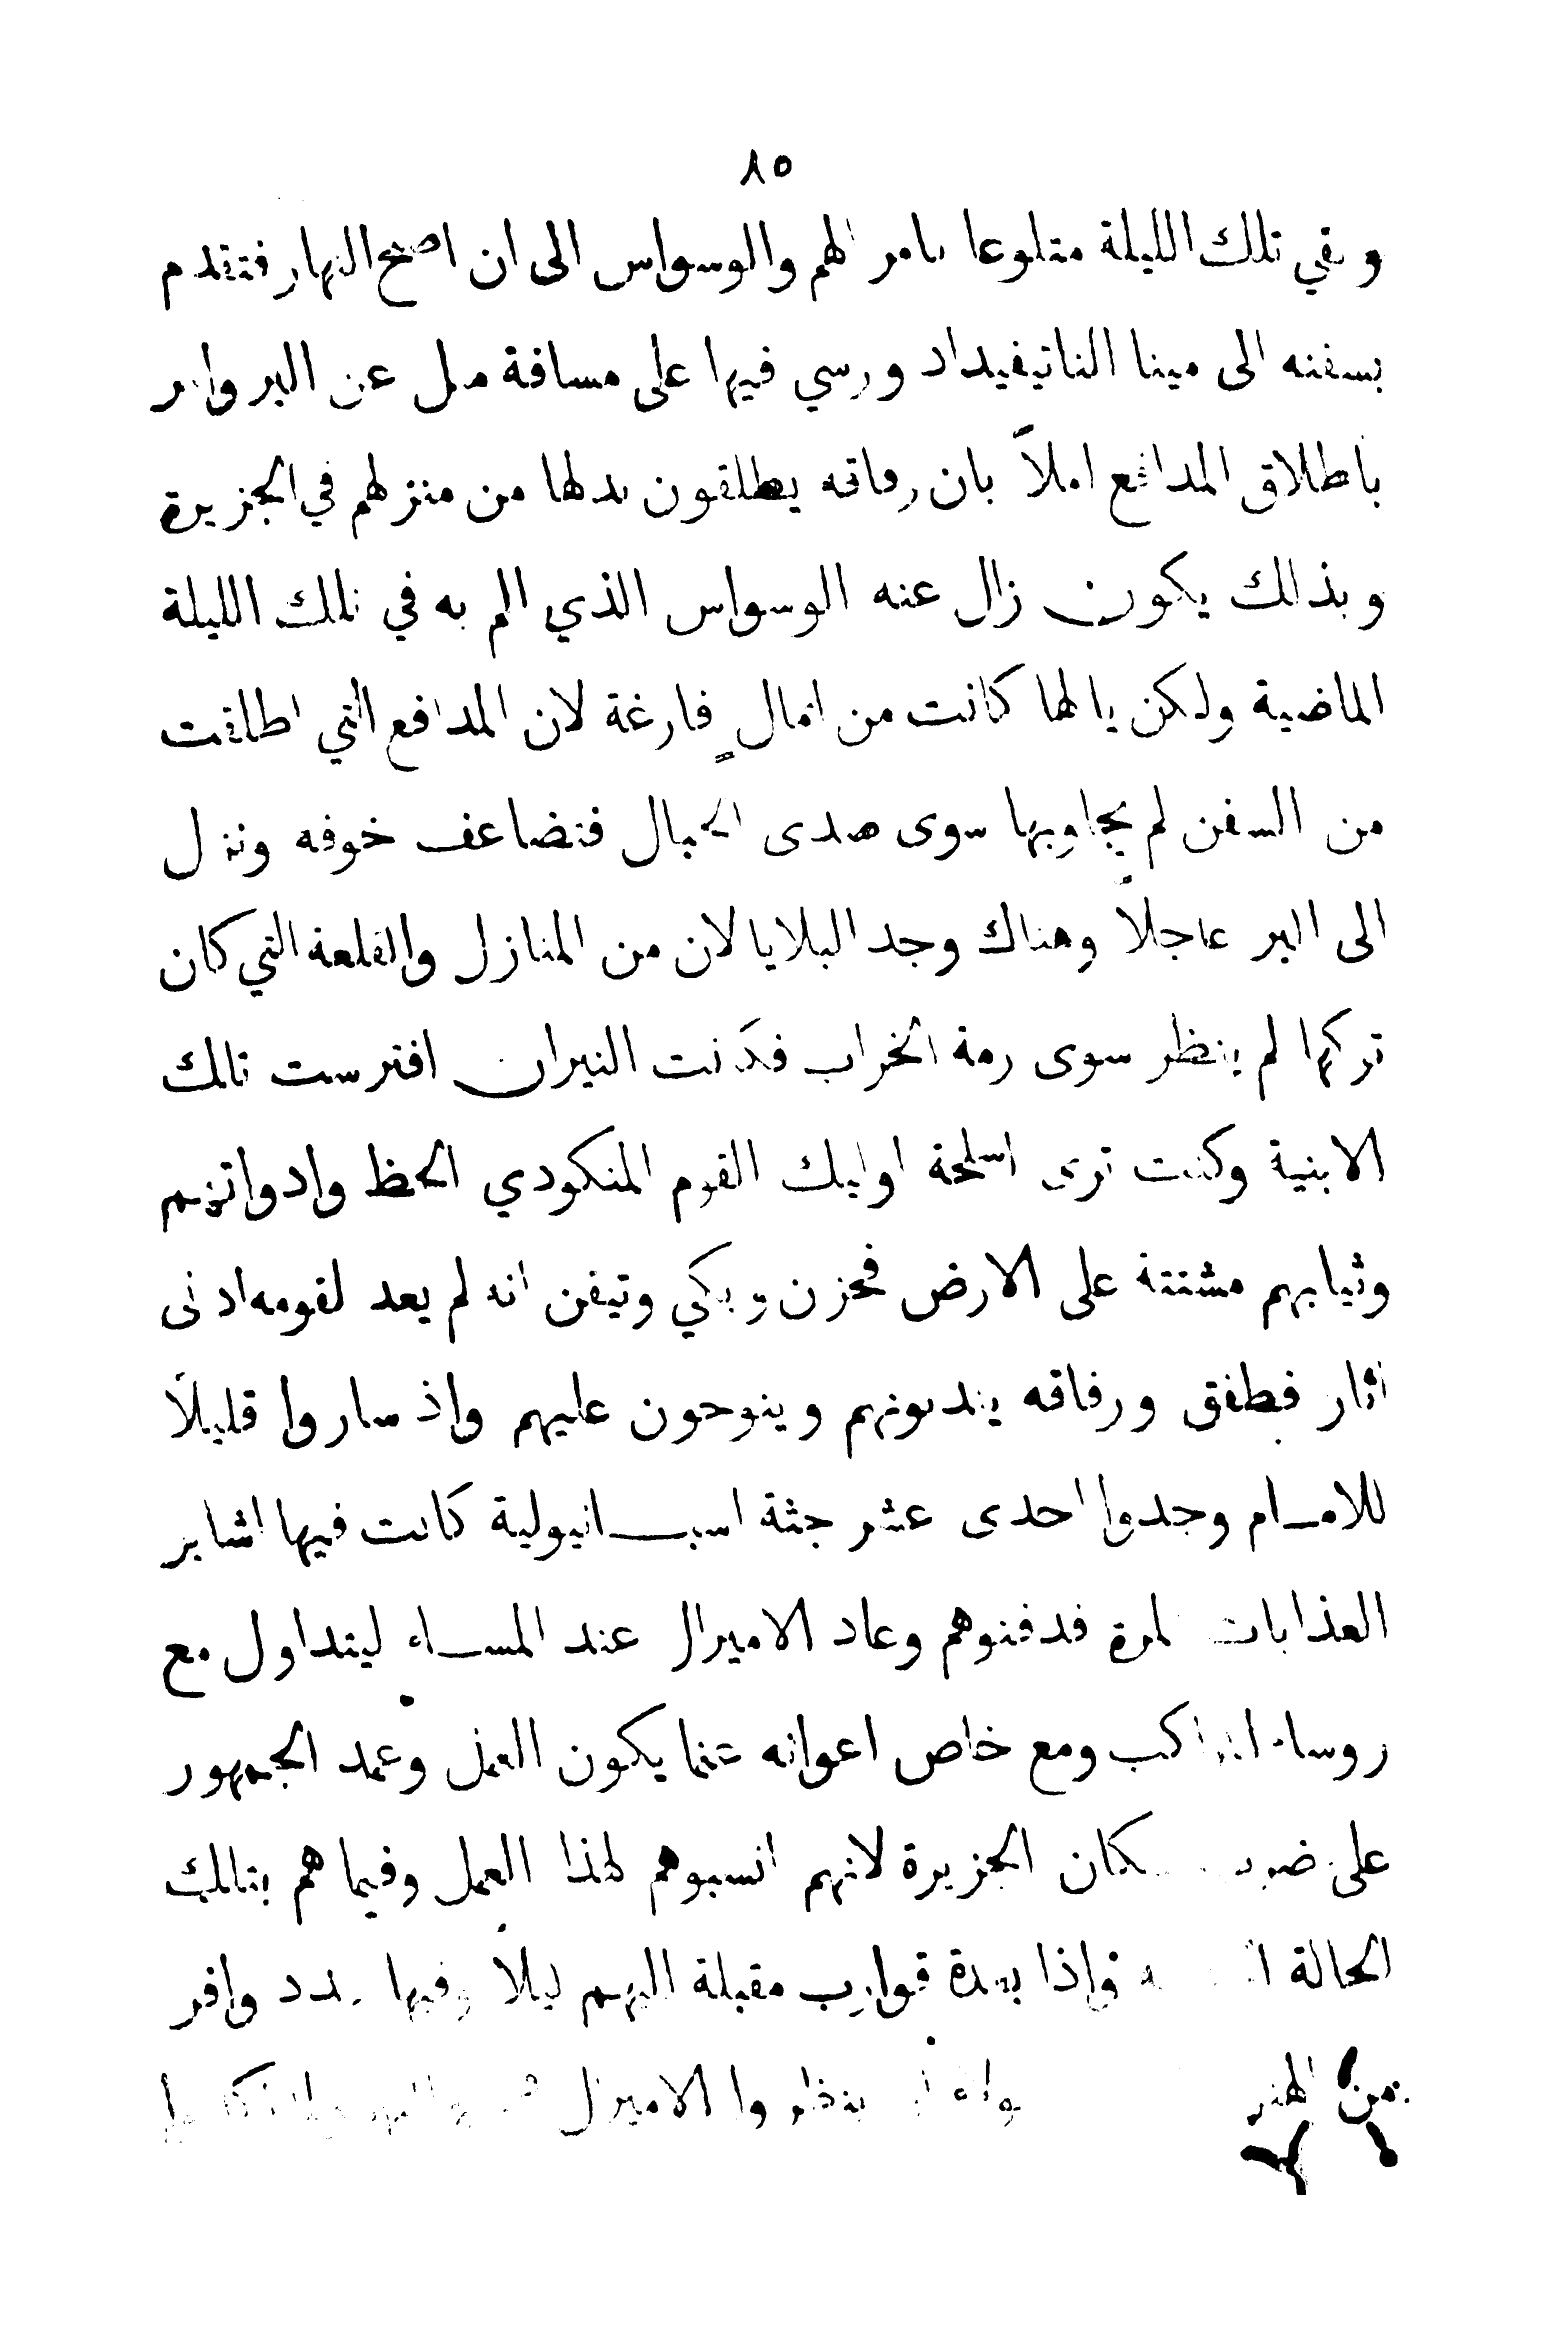 ٨٥
وبقي تلك الليلة متلوعا بامر الهم والوسواس الى ان اصبح النهار فتقدم
بسفنه الى مينا الناتيفيداد ورسي فيها على مسافة ميل عن البر وامر
باطلاق المدافع املاً بان رفاقه يطلقون بدلها من منزلهم في الجزيرة
وبذلك يكون زال عنه الوسواس الذي الم به في تلك الليلة
الماضية ولكن يالها كانت من امالٍ فارغة لان المدافع التي اطلقت
من السفن لم يجاوبها سوى صدى الجبال فتضاعف خوفه ونزل
الى البر عاجلاً وهناك وجد البلايا لان من المنازل والقلعة التي كان
تركها لم ينظر سوى رمة الخراب فكانت النيران افترست تلك
الابنية وكنت ترى اسلحة اوليك القوم المنكودي الحظ وادواتهم
وثيابهم مشتتة على الارض فحزن وبكي وتيقن انه لم يعد لقومه ادنى
اثار فطفق ورفاقه يندبونهم وينوحون عليهم واذ ساروا قليلاً
للامام وجدوا احدى عشر جثة اسبانيولية كانت فيها اشاير
العذابات المرة فدفنوهم وعاد الاميرال عند المساء ليتداول مع
روساء المراكب ومع خاص اعوانه عما يكون العمل وعمد الجمهور
على ضرب سكان الجزيرة لانهم انسبوهم لهذا العمل وفيما هم بتلك
الحالة واذا بعدة قوارب مقبلة اليهم ليلاً وفيها عدد وافر
من ينظروا الاميرال